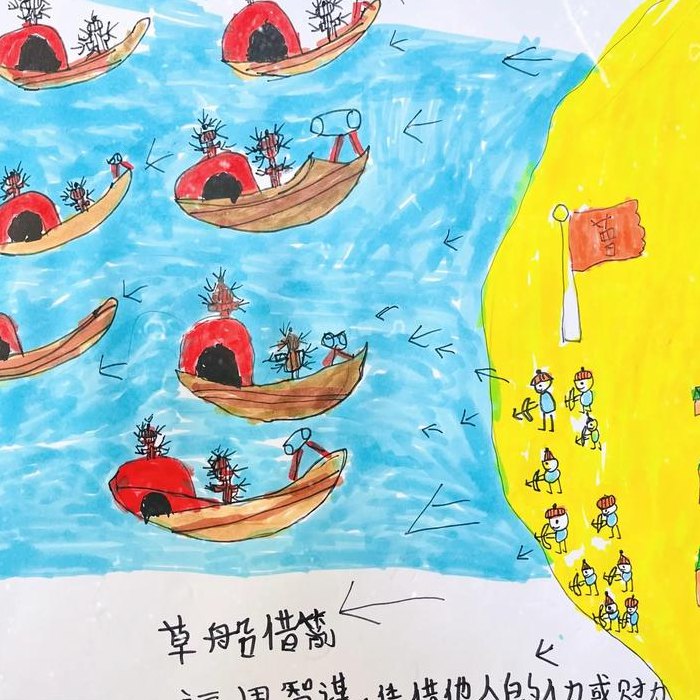 曹
草船借箭
运用智谋,凭借他人的人力或财力